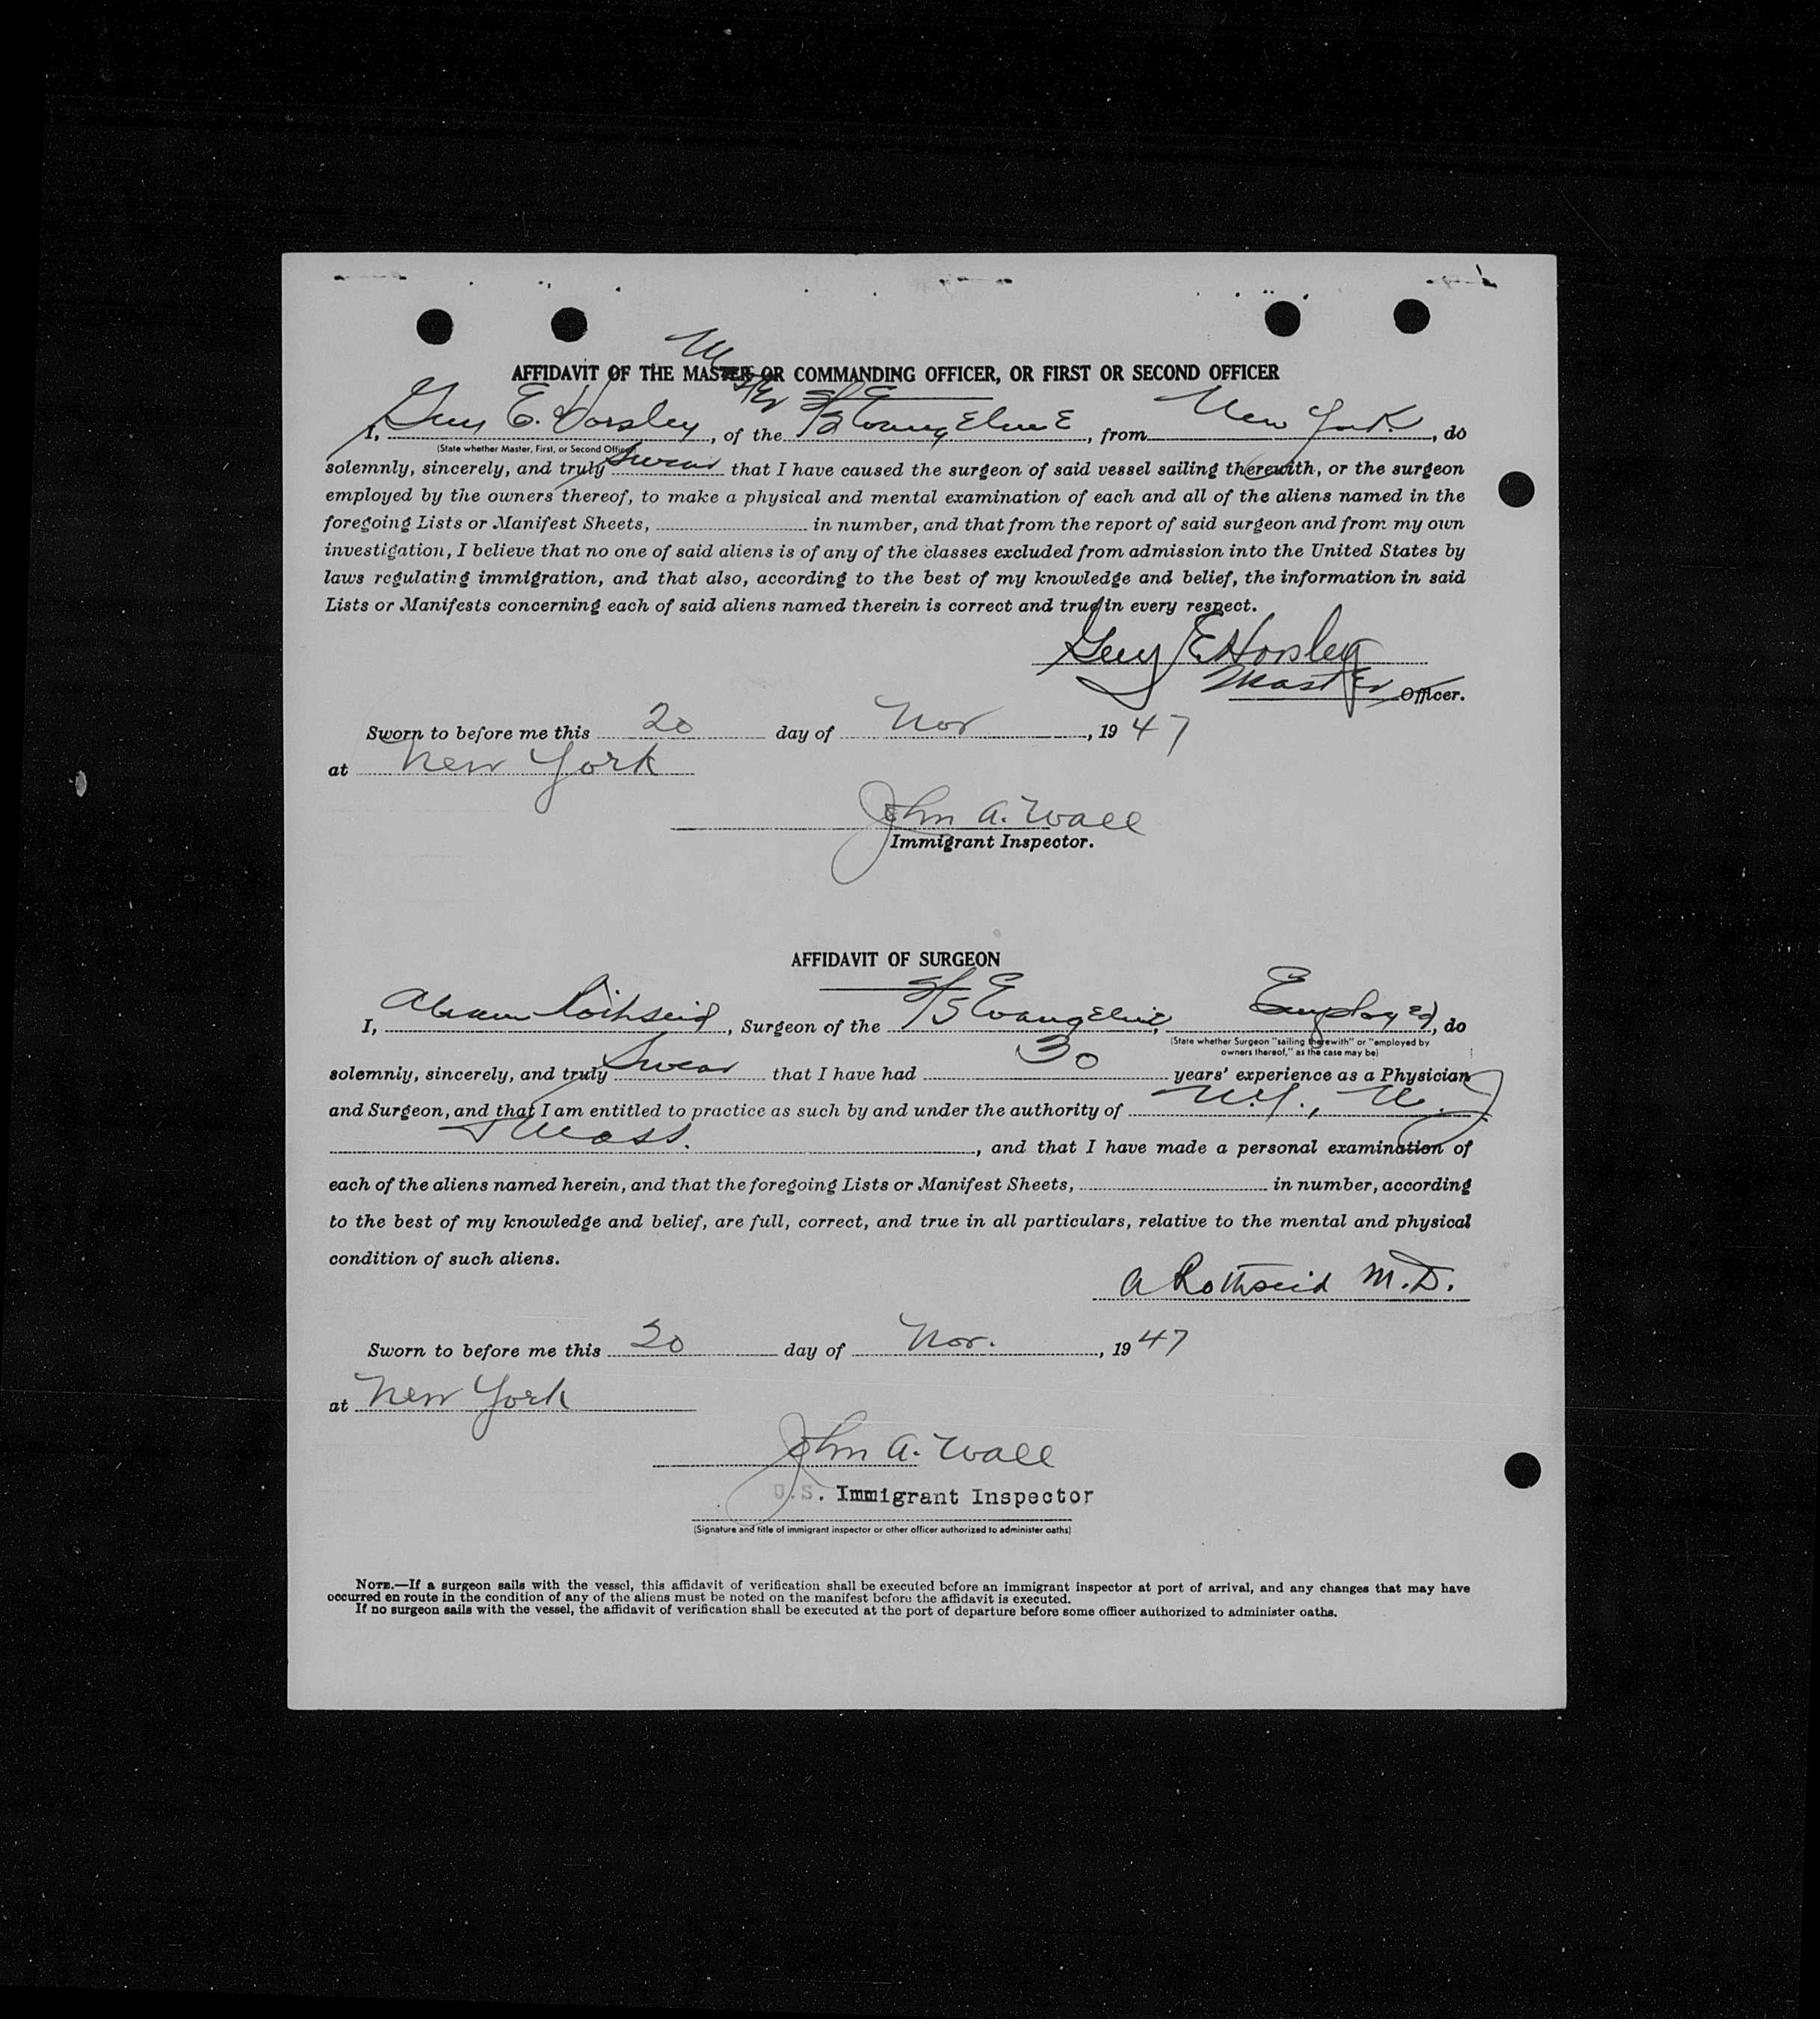 AFFIDAVIT OF THE MASTER OR COMMANDING OFFICER, OR FIRST OR SECOND OFFICER
Master
I, Guy E. Horsley, of the S/S EvangElinE, from New York, do
(State whether Master, First, or Second Officer)
solemnly, sincerely, and truly Swear that I have caused the surgeon of said vessel sailing therewith, or the surgeon
employed by the owners thereof, to make a physical and mental examination of each and all of the aliens named in the
foregoing Lists or Manifest Sheets, in number, and that from the report of said surgeon and from my own
investigation, I believe that no one of said aliens is of any of the classes excluded from admission into the United States by
laws regulating immigration, and that also, according to the best of my knowledge and belief, the information in said
Lists or Manifests concerning each of said aliens named therein is correct and true in every respect.
Guy E Horsley
Master Officer.
Sworn to before me this 20 day of Nov, 1947
at New York
John A. Wall
Immigrant Inspector.
AFFIDAVIT OF SURGEON
I, Rothseid, Surgeon of the S/S Evangeline, Employed, do
(State whether Surgeon "sailing therewith" or "employed by
owners thereof," as the case may be)
solemnly, sincerely, and truly Swear that I have had 30 years' experience as a Physician
and Surgeon, and that I am entitled to practice as such by and under the authority of N.Y., N.J.
& Mass., and that I have made a personal examination of
each of the aliens named herein, and that the foregoing Lists or Manifest Sheets, in number, according
to the best of my knowledge and belief, are full, correct, and true in all particulars, relative to the mental and physical
condition of such aliens.
A Rothseid M.D.
Sworn to before me this 20 day of Nov., 1947
at New York
John A. Wall
U.S. Immigrant Inspector
(Signature and title of immigrant inspector or other officer authorized to administer oaths)
NOTE.—If a surgeon sails with the vessel, this affidavit of verification shall be executed before an immigrant inspector at port of arrival, and any changes that may have
occurred en route in the condition of any of the aliens must be noted on the manifest before the affidavit is executed.
If no surgeon sails with the vessel, the affidavit of verification shall be executed at the port of departure before some officer authorized to administer oaths.